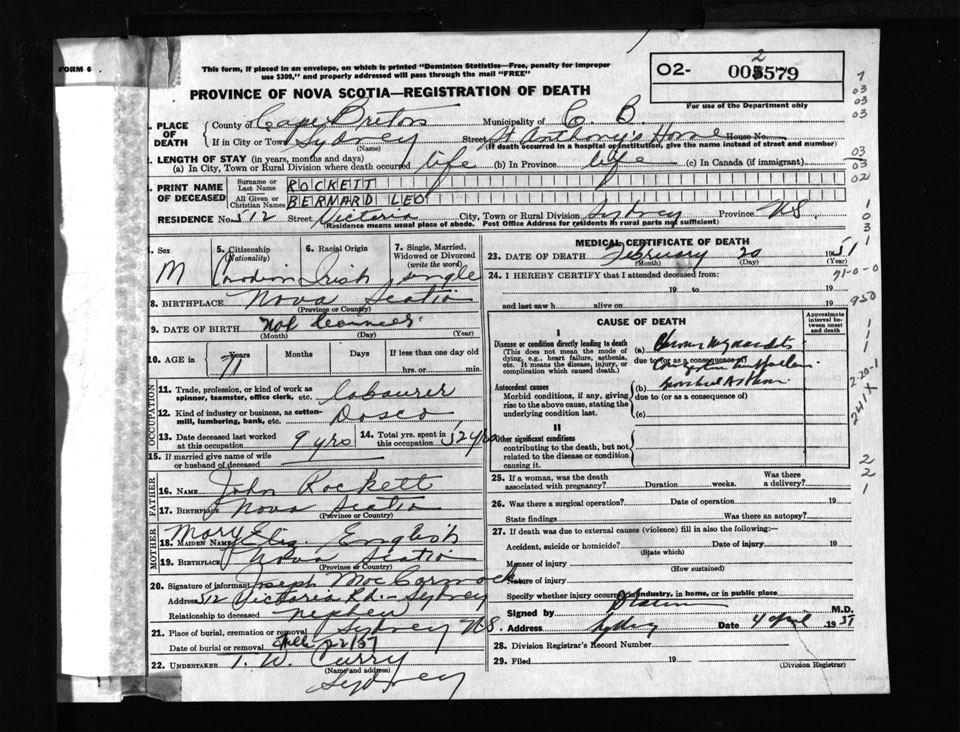 FORM 6
This form, if placed in an envelope, on which is printed "Dominion Statistics—Free, penalty for improper
use $300," and properly addressed will pass through the mail "FREE"
O2- 002579
For use of the Department only
PROVINCE OF NOVA SCOTIA—REGISTRATION OF DEATH
PLACE OF DEATH
County of Cape Breton Municipality of C. B.
If in City or Town Sydney Street St Anthony's Home House No.
(Name) (If death occurred in a hospital or institution, give the name instead of street and number)
LENGTH OF STAY (in years, months and days)
(a) In City, Town or Rural Division where death occurred life (b) In Province life (c) In Canada (if immigrant)
PRINT NAME OF DECEASED
Surname or Last Name ROCKETT
All Given or Christian Names BERNARD LEO
RESIDENCE No. 512 Street Victoria City, Town or Rural Division Sydney Province N.S.
(Residence means usual place of abode. Post Office Address for residents in rural parts not sufficient)
4. Sex M
5. Citizenship (Nationality) Canadian
6. Racial Origin Irish
7. Single, Married, Widowed or Divorced (write the word) single
8. BIRTHPLACE Nova Scotia
(Province or County)
9. DATE OF BIRTH Not
(Month) (Day) (Year)
10. AGE in Years 71 Months Days If less than one day old
hrs. or min.
OCCUPATION
11. Trade, profession, or kind of work as
spinner, teamster, office clerk, etc. labourer
12. Kind of industry or business, as cotton-
mill, lumbering, bank, etc. Dosco
13. Date deceased last worked
at this occupation 9 yrs
14. Total yrs. spent in
this occupation
15. If married give name of wife
or husband of deceased
FATHER
16. NAME John Rockett
17. BIRTHPLACE Nova Scotia
(Province or Country)
MOTHER
18. MAIDEN NAME Mary Eliz. English
19. BIRTHPLACE Nova Scotia
(Province or Country)
20. Signature of informant Joseph MacCormack
Address 512 Victoria Rd. - Sydney
Relationship to deceased nephew
21. Place of burial, cremation or removal Sydney N.S.
Date of burial or removal
22. UNDERTAKER T. W. Curry
(Name and address)
Sydney
MEDICAL CERTIFICATE OF DEATH
23. DATE OF DEATH February 20 1951
(Month) (Day) (Year)
24. I HEREBY CERTIFY that I attended deceased from:
19 to 19
and last saw h alive on 19
CAUSE OF DEATH
Approximate interval between onset and death
I
Disease or condition directly leading to death (a)
(This does not mean the mode of
dying, e.g., heart failure, asthenia,
etc. It means the disease, injury, or
complication which caused death.)
due to (or as a consequence of)
Antecedent causes
Morbid conditions, if any, giving
rise to the above cause, stating the
underlying condition last.
(b)
due to (or as a consequence of)
(c)
II
Other significant conditions
contributing to the death, but not
related to the disease or condition
causing it.
25. If a woman, was the death
associated with pregnancy? Duration weeks. Was there
a delivery?
26. Was there a surgical operation? Date of operation 19
State findings Was there an autopsy?
27. If death was due to external causes (violence) fill in also the following:—
Accident, suicide or homicide? Date of injury 19
(State which)
Manner of injury
(How sustained)
Nature of injury
Specify whether injury occurred in industry, in home, or in public place
Signed by M.D.
Address Sydney Date 4 April 1951
28. Division Registrar's Record Number
29. Filed 19
(Division Registrar)
7
03
03
03
03
03
02
1
0
3
1
71-0-0
950
1
1
1
2-20-1
241X
2
2
1